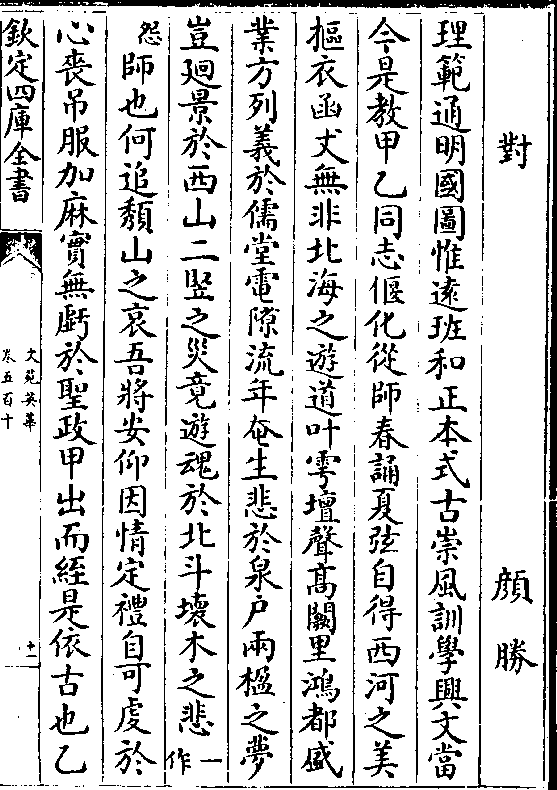 對　顔勝
理範通明國圖惟遠班和正本式古崇風訓學興文當
今是教甲乙同志偃化從師春誦夏弦自得西河之美
摳衣函丈無非北海之遊道叶雩壇聲髙闕里鴻都盛
業方列義於儒堂電隙流年奄生悲於泉戶兩楹之夢
豈廻景於西山二竪之災竟遊魂於北斗壞木之悲一作
怨師也何追頽山之哀吾將安仰因情定禮自可䖍於
心喪吊服加麻實無虧於聖政甲出而絰是依古也乙
欽定四庫全書
文苑英華
卷五百十
十一